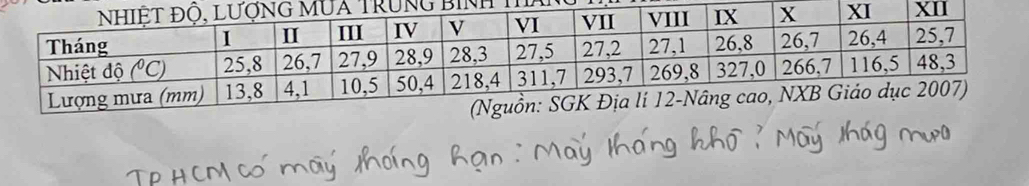 NHIỆT ĐỘ, LƯỢNG MƯA TRUNG BÌNH
Tháng I II III IV V VI VII VIII IX X XI XII
Nhiệt độ (⁰C) 25,8 26,7 27,9 28,9 28,3 27,5 27,2 27,1 26,8 26,7 26,4 25,7
Lượng mưa (mm) 13,8 4,1 10,5 50,4 218,4 311,7 293,7 269,8 327,0 266,7 116,5 48,3
(Nguồn: SGK Địa lí 12-Nâng cao, NXB Giáo dục 2007)
TP HCM có mãý tháng hạn: Mãý tháng khô? Mãý thág mưa